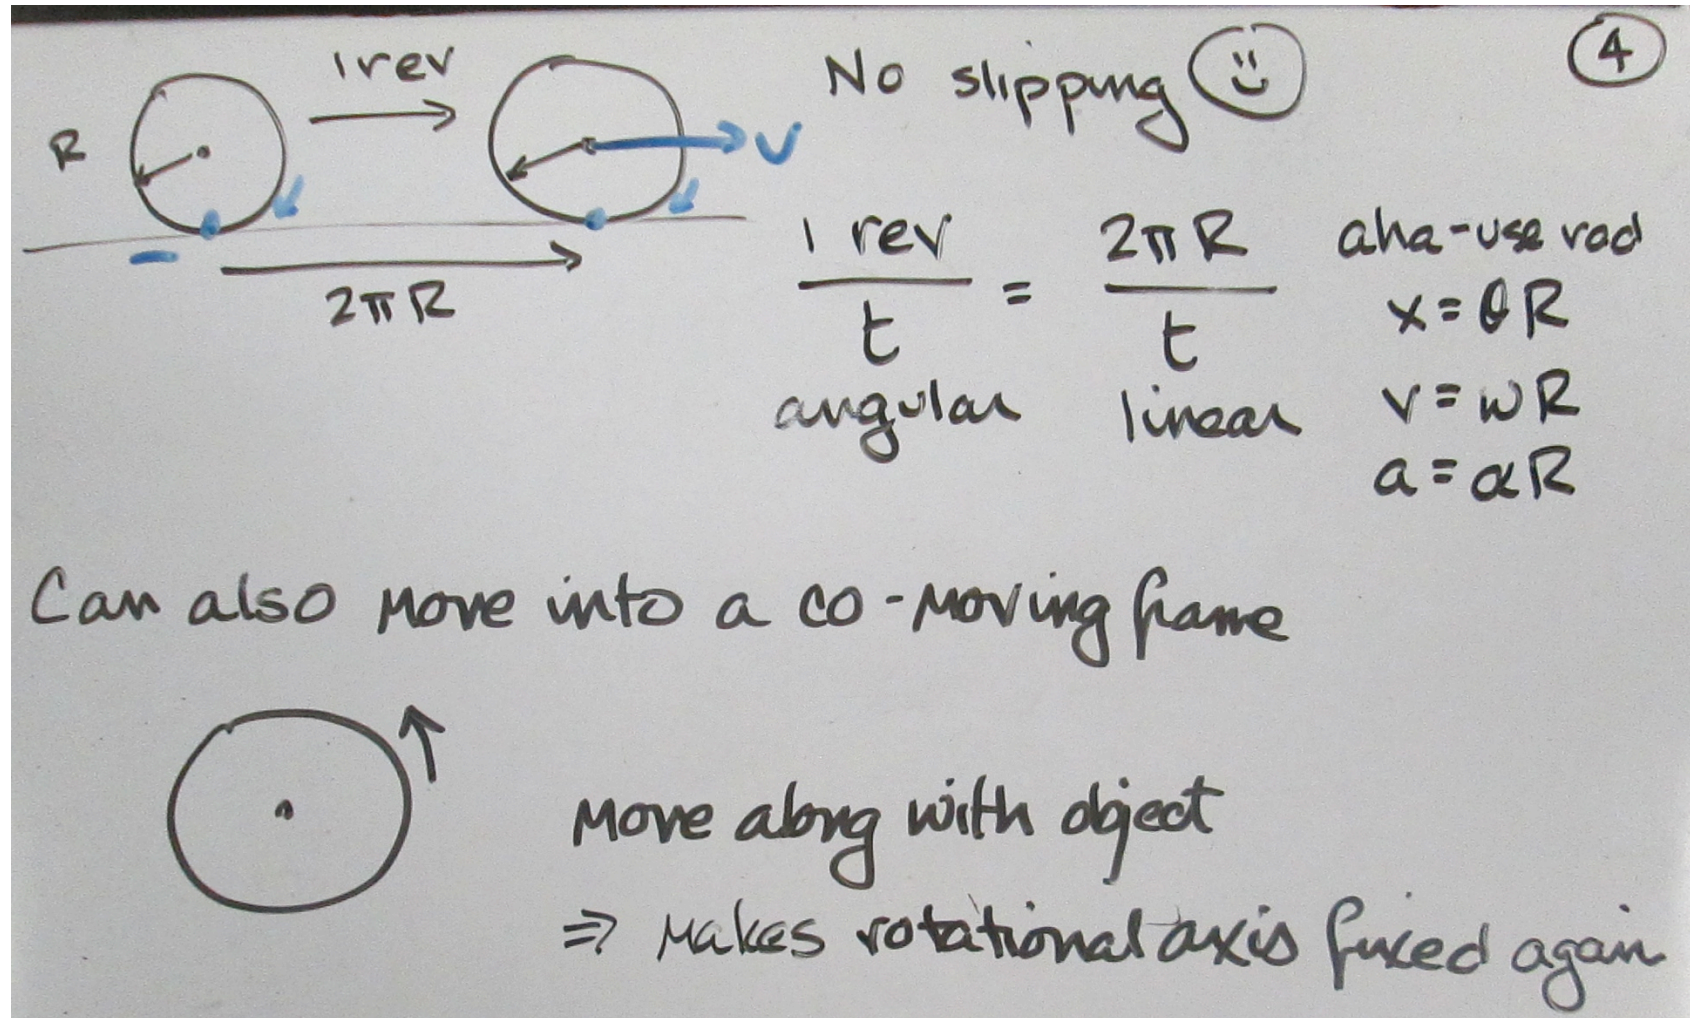 1 rev
No slipping
4
R
V
2πR
1 rev / t = 2πR / t
angular
linear
aha-use rad
x = θR
v = ωR
a = αR
Can also move into a co-moving frame
Move along with object
⇒ Makes rotational axis fixed again